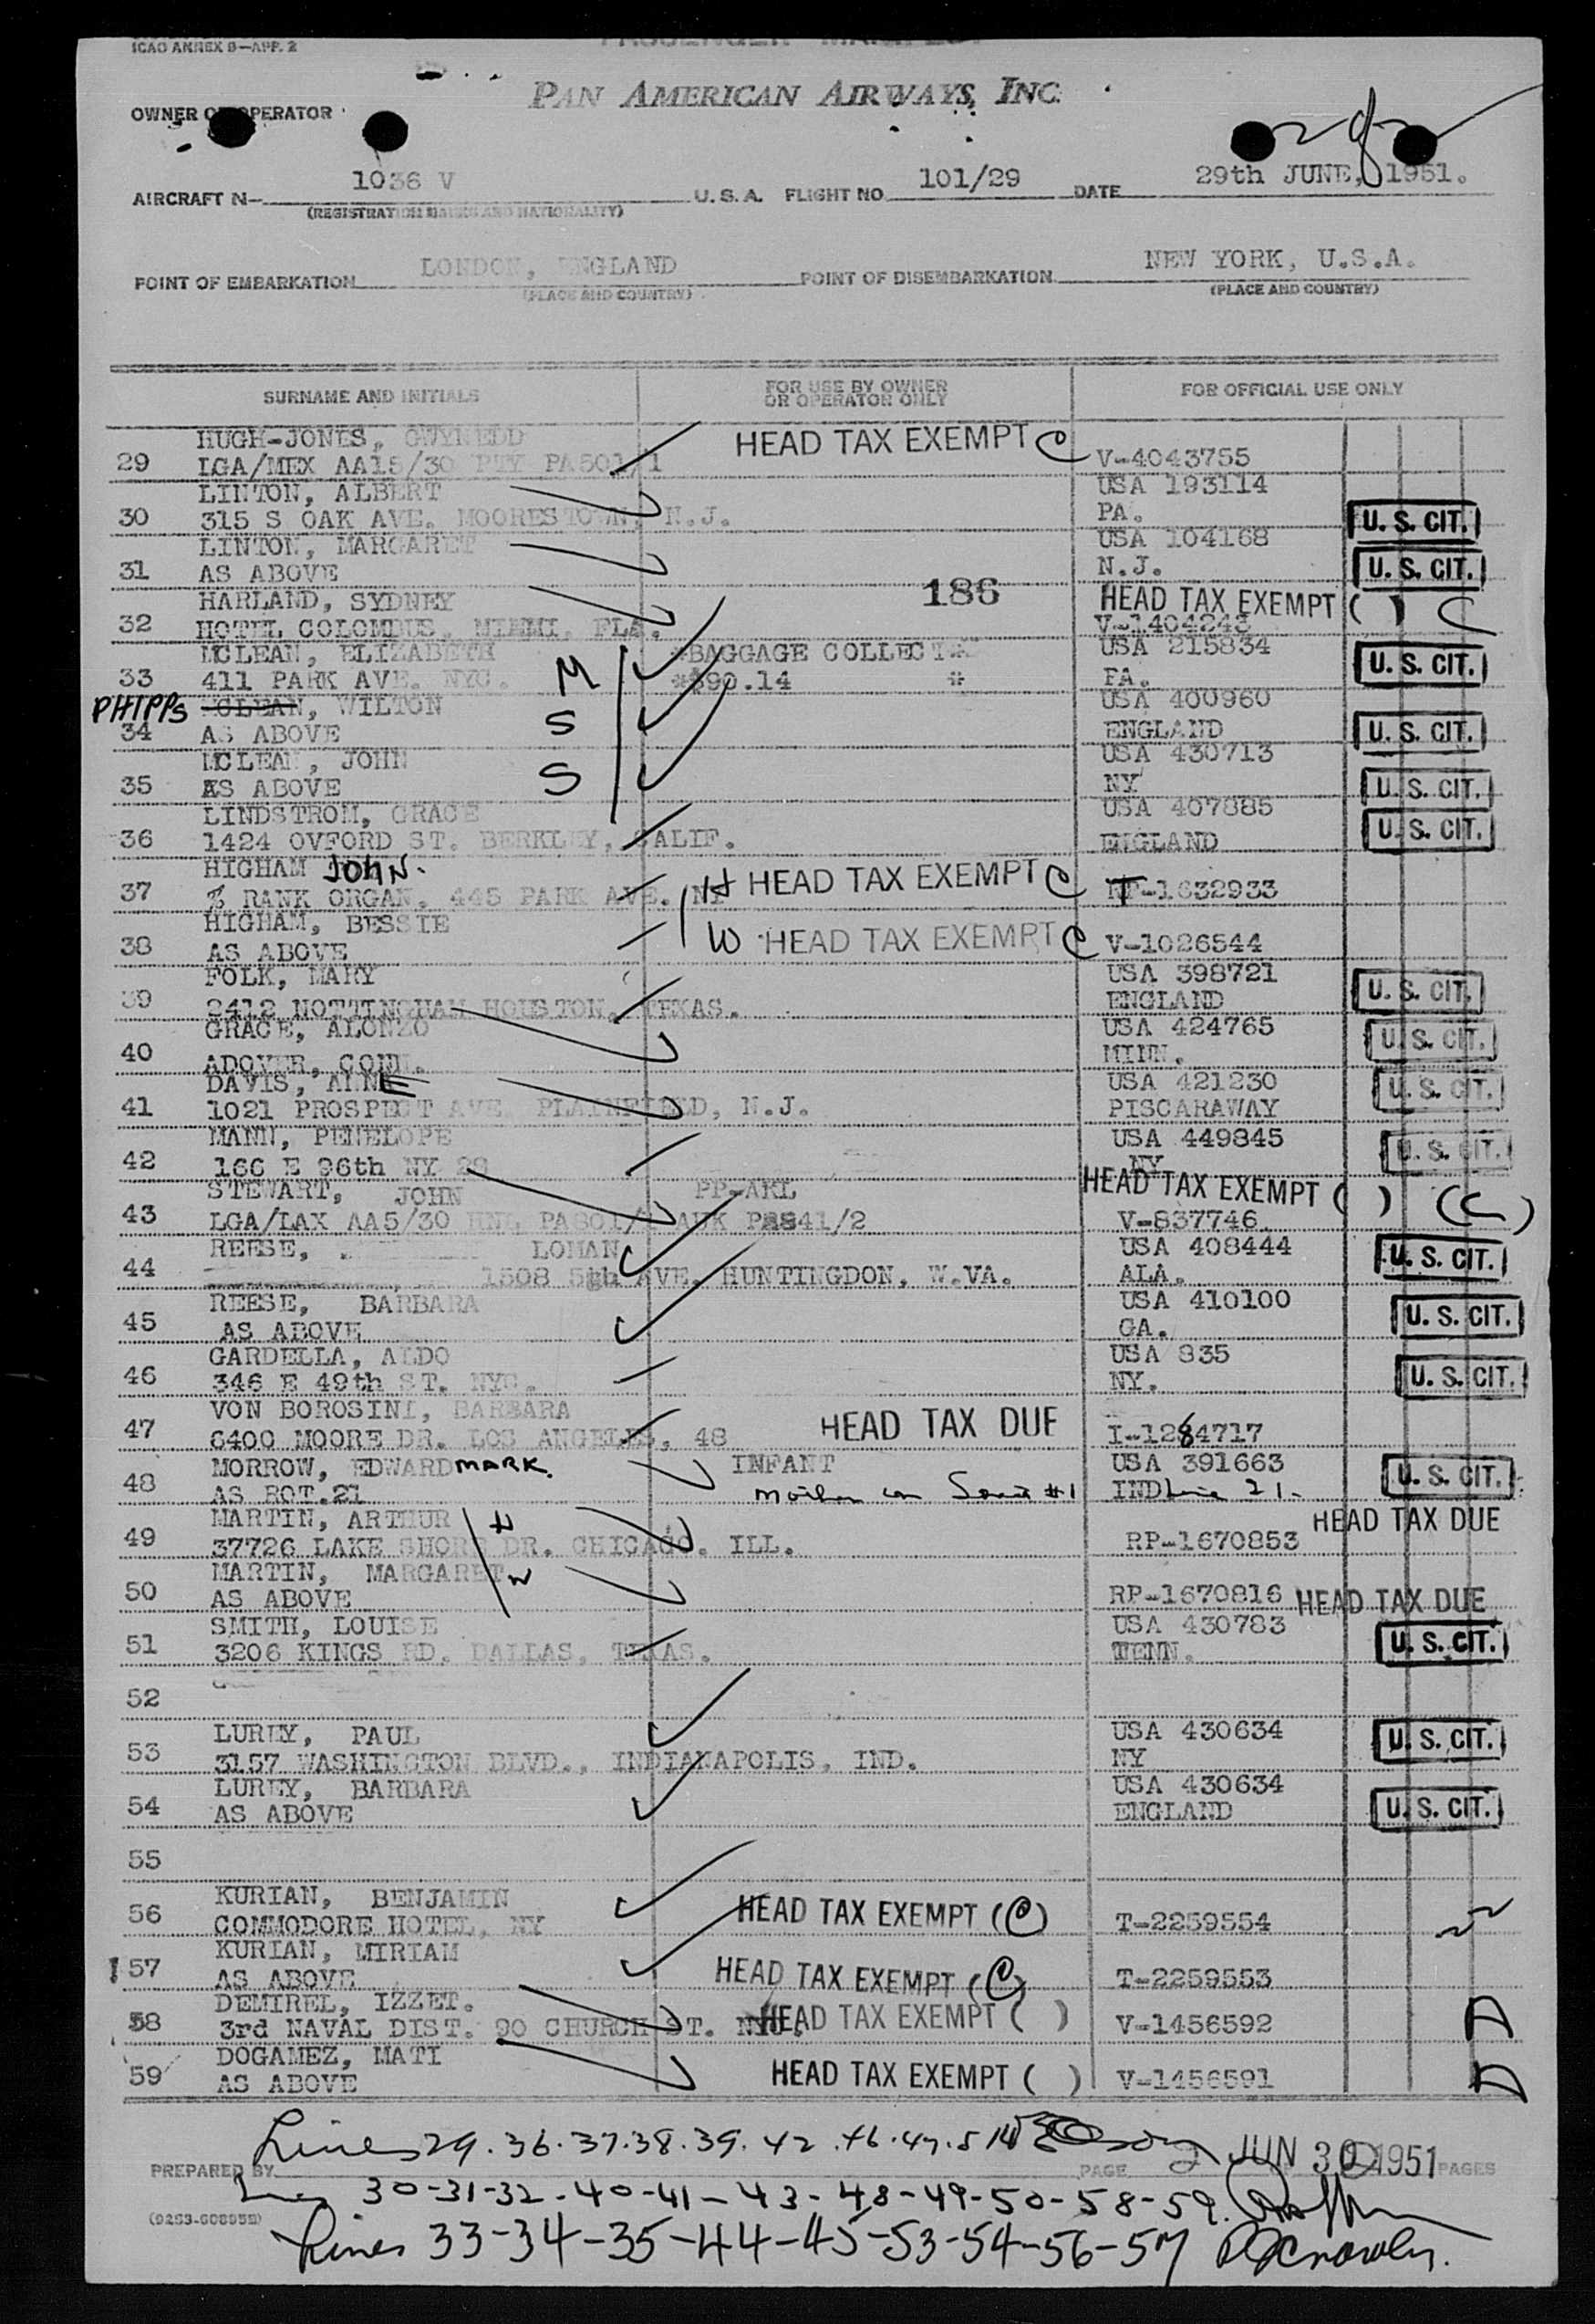 ICAO ANNEX 9—APP. 2
PASSENGER MANIFEST
PAN AMERICAN AIRWAYS, INC.
OWNER OR OPERATOR
AIRCRAFT N— 1036 V U. S. A. FLIGHT NO. 101/29 DATE 29th JUNE, 1951.
(REGISTRATION MARKS AND NATIONALITY)
POINT OF EMBARKATION LONDON, ENGLAND POINT OF DISEMBARKATION NEW YORK, U.S.A.
(PLACE AND COUNTRY) (PLACE AND COUNTRY)
SURNAME AND INITIALS FOR USE BY OWNER OR OPERATOR ONLY FOR OFFICIAL USE ONLY
HUGH-JONES, GWYNEDD HEAD TAX EXEMPT C
29 LGA/MEX AA15/30 PTY PA501/1 V-4043755
LINTON, ALBERT USA 193114
30 315 S OAK AVE. MOORESTOWN, N.J. PA. U. S. CIT.
LINTON, MARGARET USA 104168
31 AS ABOVE N.J. U. S. CIT.
HARLAND, SYDNEY 186 HEAD TAX EXEMPT ( ) C
32 HOTEL COLOMBUS, MIAMI, FLA. V-1404243
MCLEAN, ELIZABETH *BAGGAGE COLLECT* USA 215834
33 411 PARK AVE. NYC. M *$90.14 * PA. U. S. CIT.
PHIPPS MCLEAN, WILTON S USA 400960
34 AS ABOVE ENGLAND U. S. CIT.
MCLEAN, JOHN S USA 430713
35 AS ABOVE NY U. S. CIT.
LINDSTROM, GRACE USA 407885
36 1424 OVFORD ST. BERKLEY, CALIF. ENGLAND U. S. CIT.
HIGHAM JOHN. H HEAD TAX EXEMPT C
37 % RANK ORGAN. 445 PARK AVE. NY T-1632933
HIGHAM, BESSIE W HEAD TAX EXEMPT C
38 AS ABOVE V-1026544
FOLK, MARY USA 398721
39 2412 NOTTINGHAM HOUSTON, TEXAS. ENGLAND U. S. CIT.
GRACE, ALONZO USA 424765
40 ADOVER, CONN. MINN. U. S. CIT.
DAVIS, ANNE USA 421230
41 1021 PROSPECT AVE. PLAINFIELD, N.J. PISCARAWAY U. S. CIT.
MANN, PENELOPE USA 449845
42 166 E 96th NY 28 NY U. S. CIT.
STEWART, JOHN PP-AKL HEAD TAX EXEMPT ( ) (C)
43 LGA/LAX AA5/30 HNL PA801/ AUK PA841/2 V-837746
REESE, LOMAN USA 408444
44 1508 5gh AVE. HUNTINGDON, W.VA. ALA. U. S. CIT.
REESE, BARBARA USA 410100
45 AS ABOVE GA. U. S. CIT.
GARDELLA, ALDO USA 835
46 346 E 49th ST. NYC. NY. U. S. CIT.
VON BOROSINI, BARBARA HEAD TAX DUE
47 6400 MOORE DR. LOS ANGELES, 48 I-1284717
MORROW, EDWARD MARK. INFANT USA 391663
48 AS ROT.21 IND Line 21- U. S. CIT.
MARTIN, ARTHUR H HEAD TAX DUE
49 37726 LAKE SHORE DR. CHICAGO. ILL. RP-1670853
MARTIN, MARGARET W
50 AS ABOVE RP-1670816 HEAD TAX DUE
SMITH, LOUISE USA 430783
51 3206 KINGS RD. DALLAS, TEXAS. TENN. U. S. CIT.
52
LUREY, PAUL USA 430634
53 3157 WASHINGTON BLVD., INDIANAPOLIS, IND. NY U. S. CIT.
LUREY, BARBARA USA 430634
54 AS ABOVE ENGLAND U. S. CIT.
55
KURIAN, BENJAMIN HEAD TAX EXEMPT (C)
56 COMMODORE HOTEL, NY T-2259554
KURIAN, MIRIAM HEAD TAX EXEMPT (C)
57 AS ABOVE T-2259553
DEMIREL, IZZET. HEAD TAX EXEMPT ( )
58 3rd NAVAL DIST. 90 CHURCH ST. NYC. V-1456592 A
DOGAMEZ, MATI HEAD TAX EXEMPT ( )
59 AS ABOVE V-1456591 A
Lines 29.36.37.38.39.42.46.47.51 JUN 30 1951
PREPARED BY PAGE PAGES
Lines 30-31-32-40-41-43-48-49-50-58-59.
Lines 33-34-35-44-45-53-54-56-57